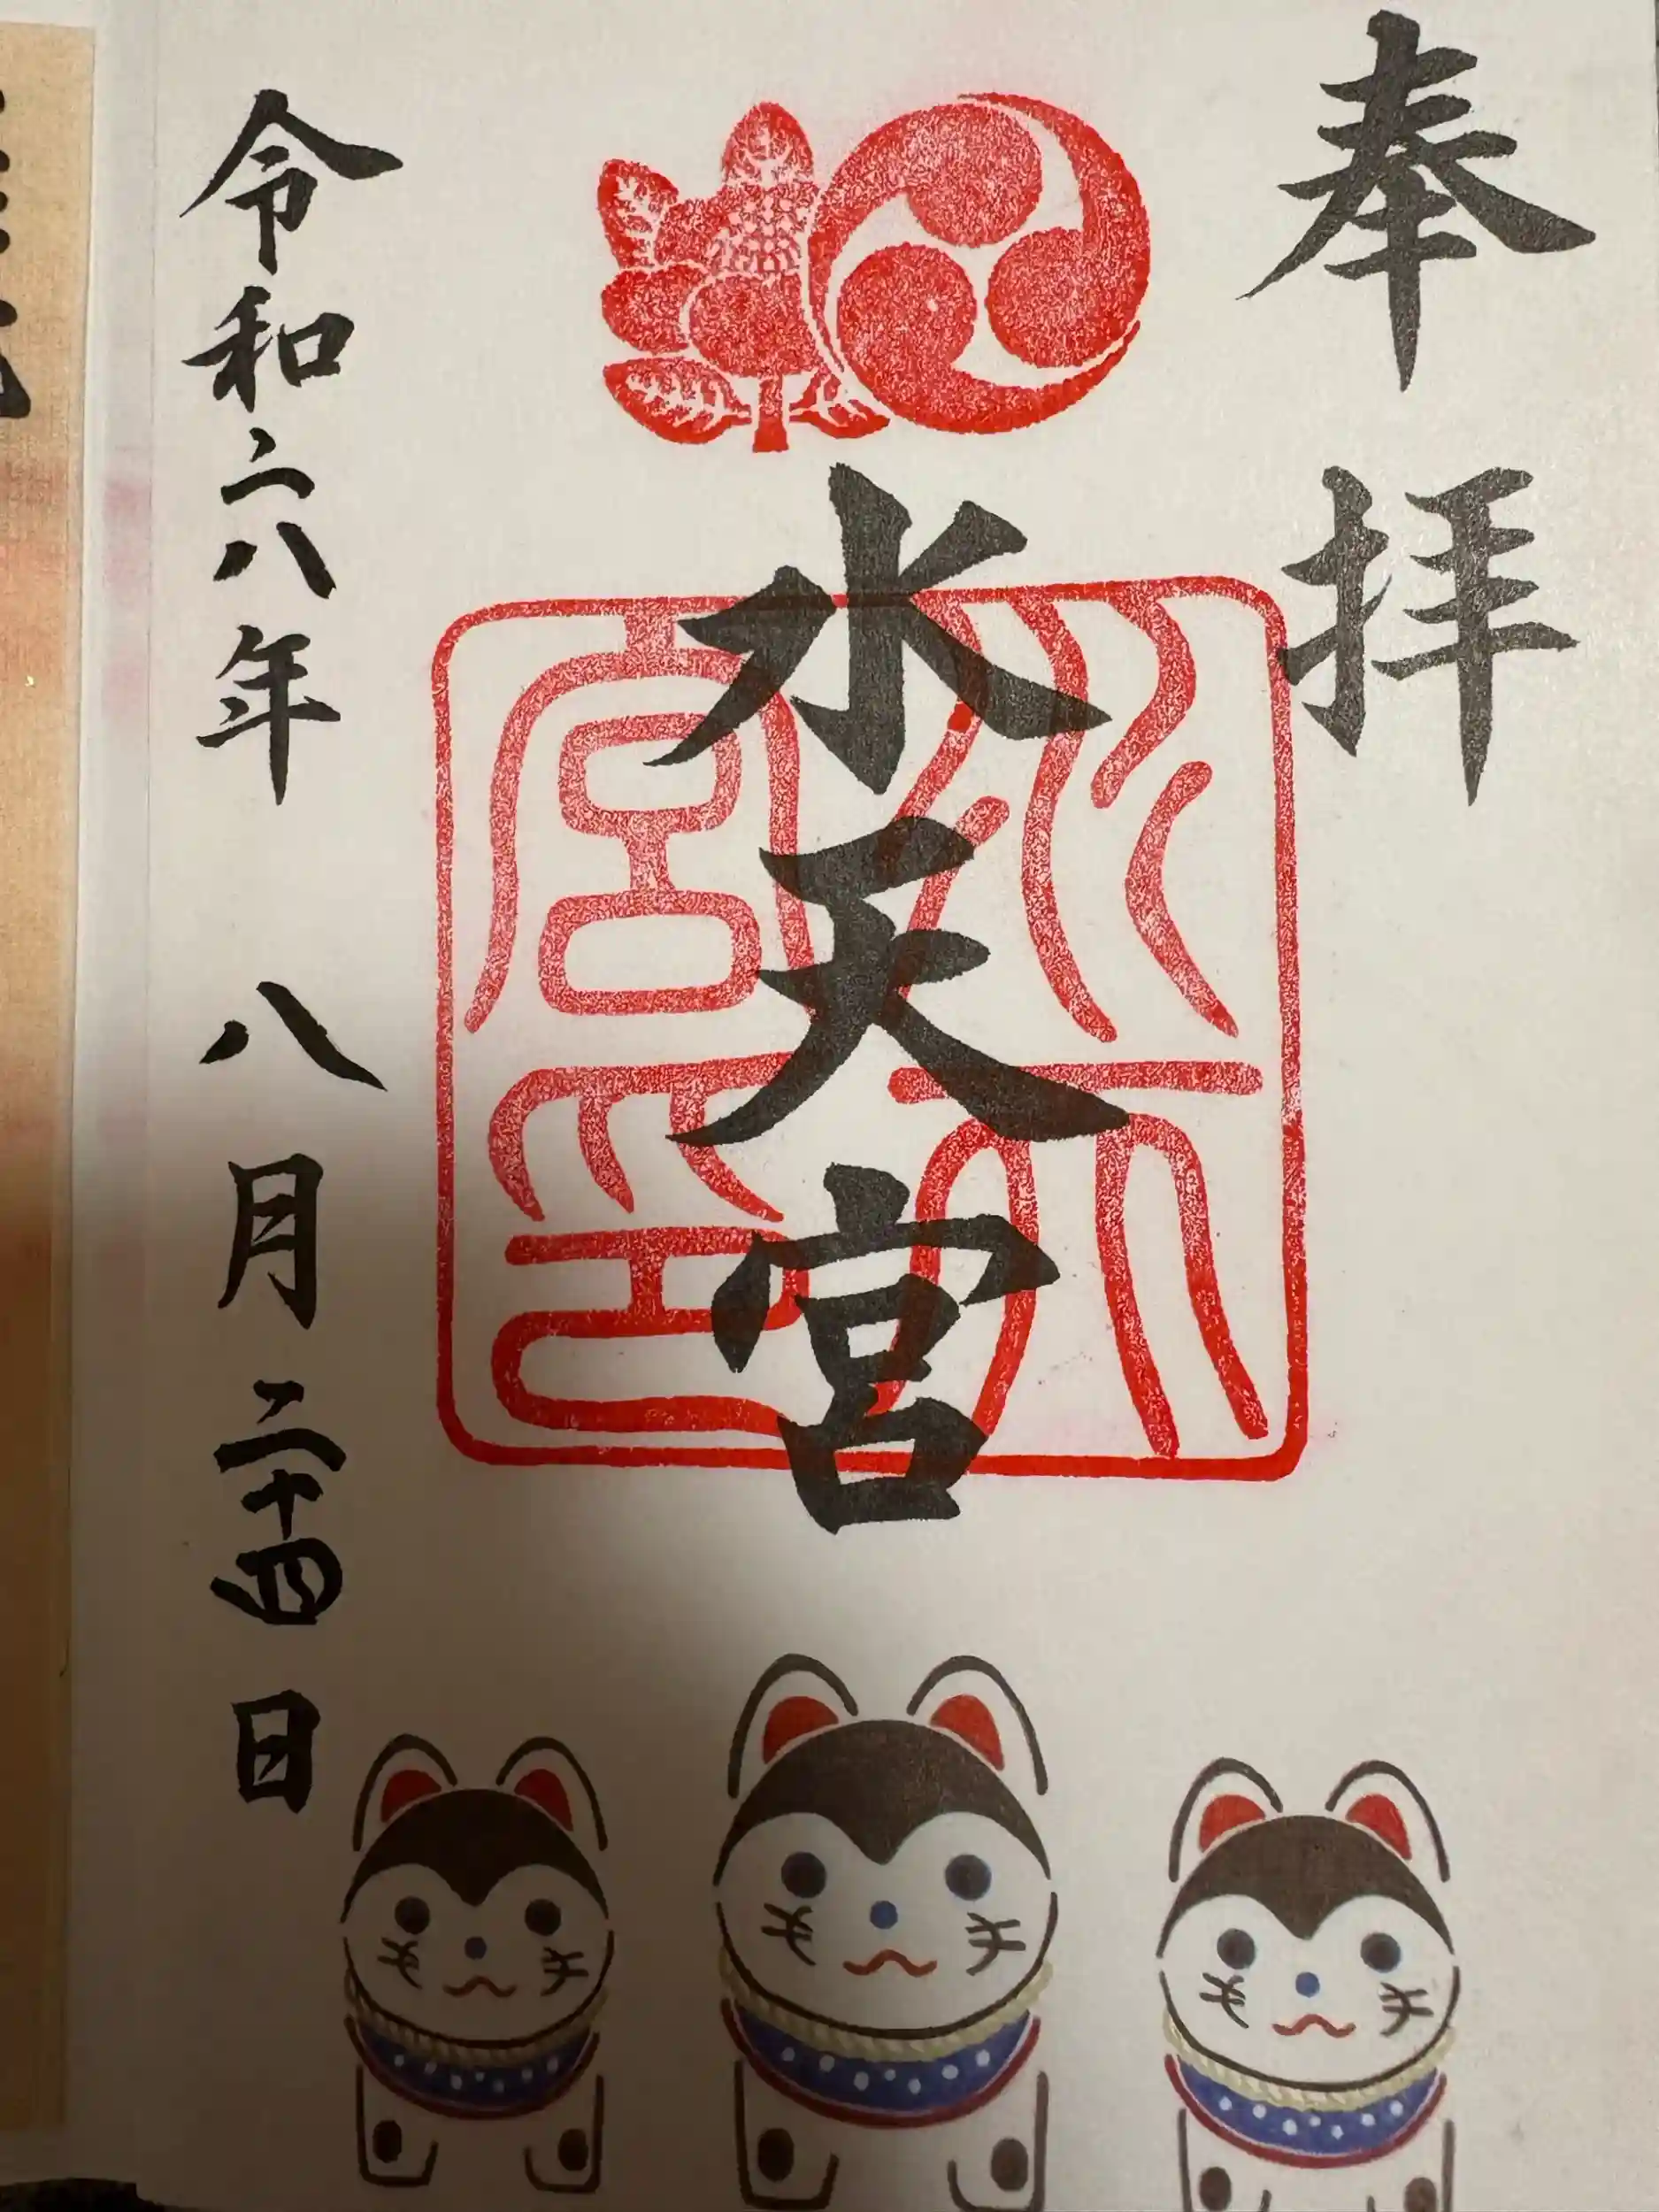 奉拝
水天宮
水天
宮印
令和六年 八月二十四日